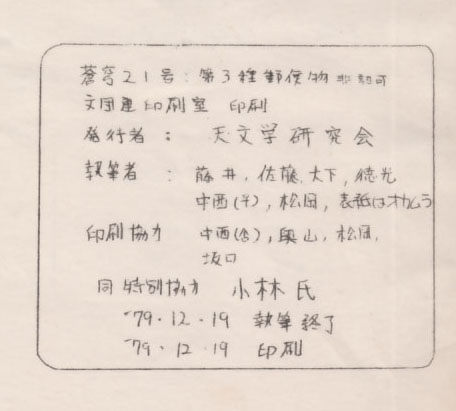 蒼穹21号：第3種郵便物非認可
文団連印刷室 印刷
発行者： 天文学研究会
執筆者： 藤井，佐藤，大下，徳光
中西(千)，松岡，表紙はオカムラ
印刷協力 中西(浩)，奥山，松岡，
坂口
同特別協力 小林氏
'79・12・19 執筆終了
'79・12・19 印刷